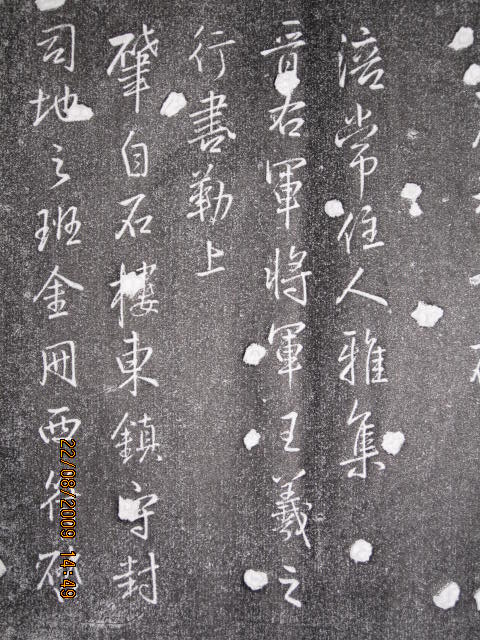 涪常住人雅集
晉右軍將軍王羲之
行書勒上
肇自石樓東鎮守封
司地之班金冊西符
22/08/2009 14:49